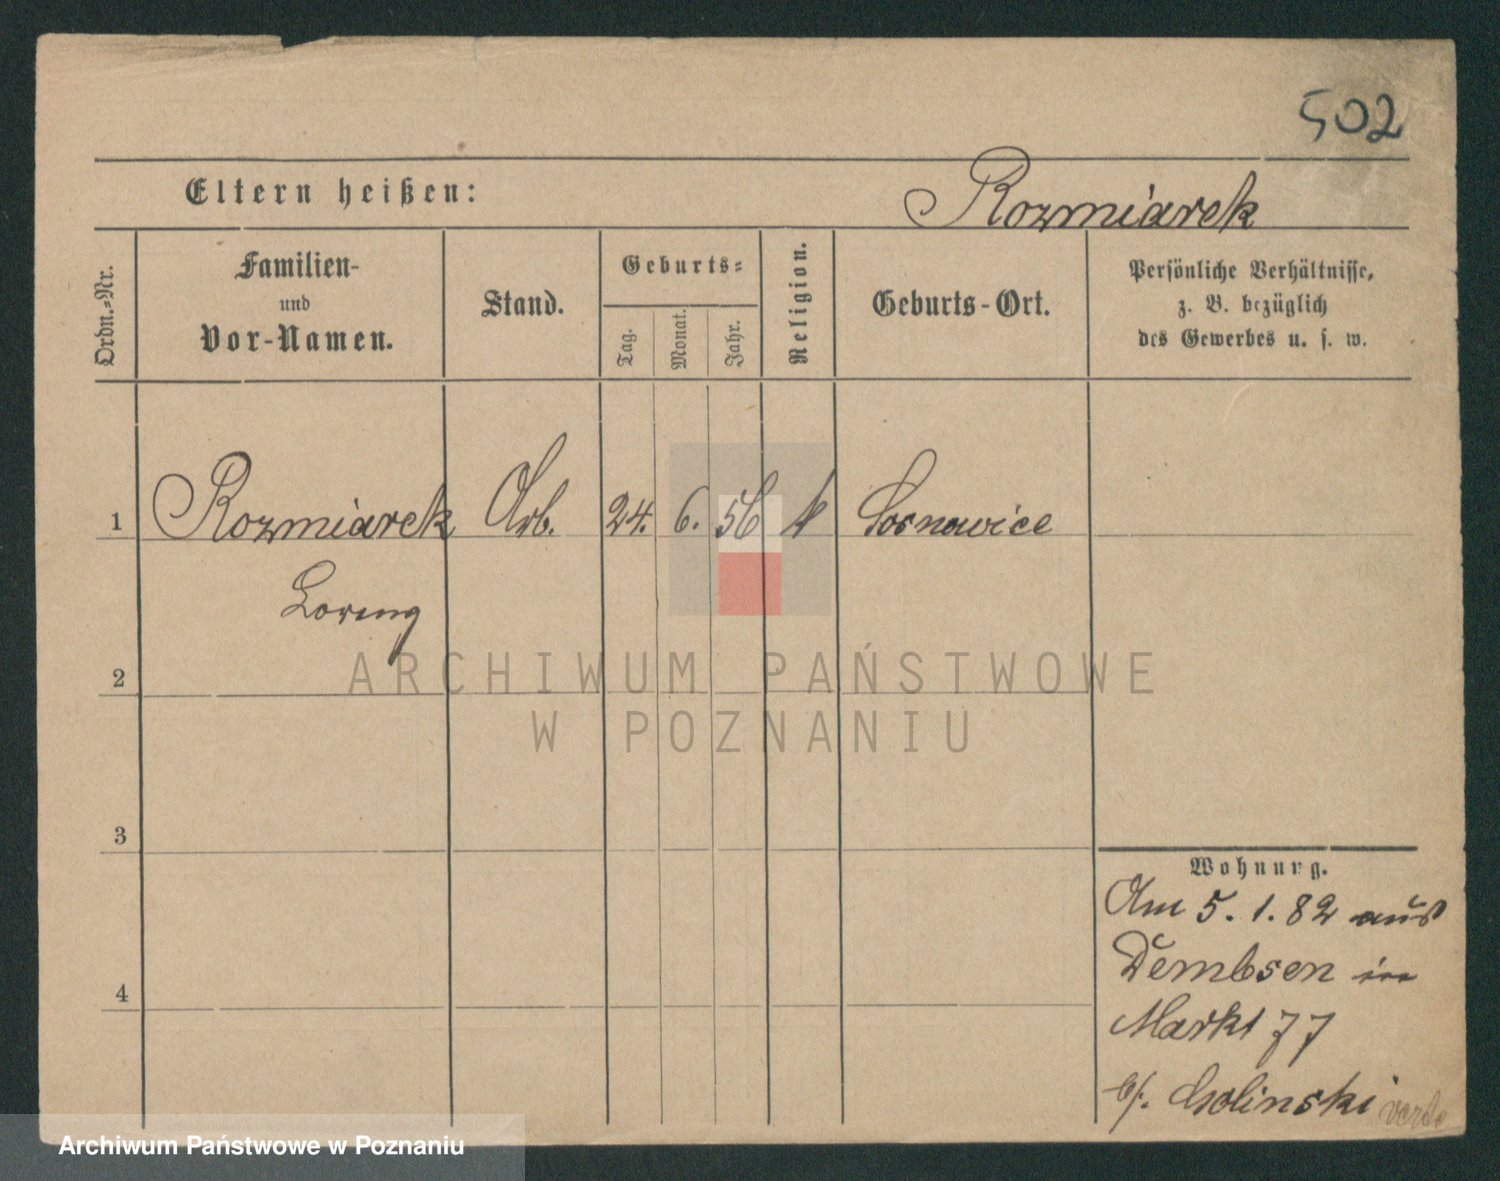 502
Eltern heißen:
Rozmiarek
Ordn.-Nr.
Familien-
und
Vor-Namen.
Stand.
Geburts-
Tag.
Monat.
Jahr.
Religion.
Geburts-Ort.
Persönliche Verhältnisse,
z. B. bezüglich
des Gewerbes u. s. w.
1 Rozmiarek Arb. 24. 6. 56 k Sosnowice
Lorenz
2
ARCHIWUM PAŃSTWOWE
W POZNANIU
3
4
Wohnung.
Am 5. 1. 82 aus
Dembsen in
Markt 77
b/. Golinski
Archiwum Państwowe w Poznaniu